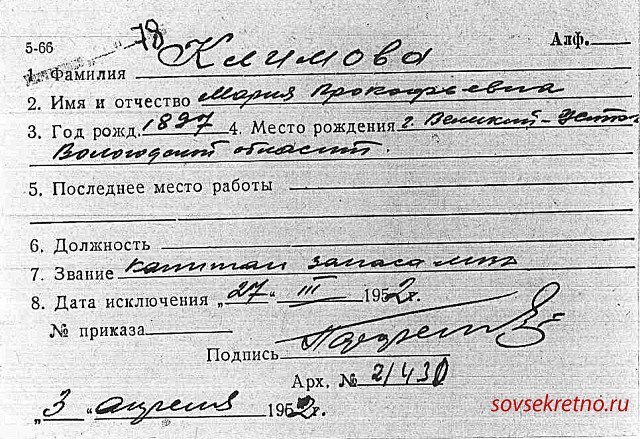 5-66
78
Алф.
1. Фамилия Климова
2. Имя и отчество Мария Прокофьевна
3. Год рожд. 1897 4. Место рождения г. Великий-Устюг
Вологодской области.
5. Последнее место работы
6. Должность
7. Звание капитан запаса
8. Дата исключения „27" III 1952г.
№ приказа
Подпись
Арх. № 21430
„3" апреля 1952г.
sovsekretno.ru